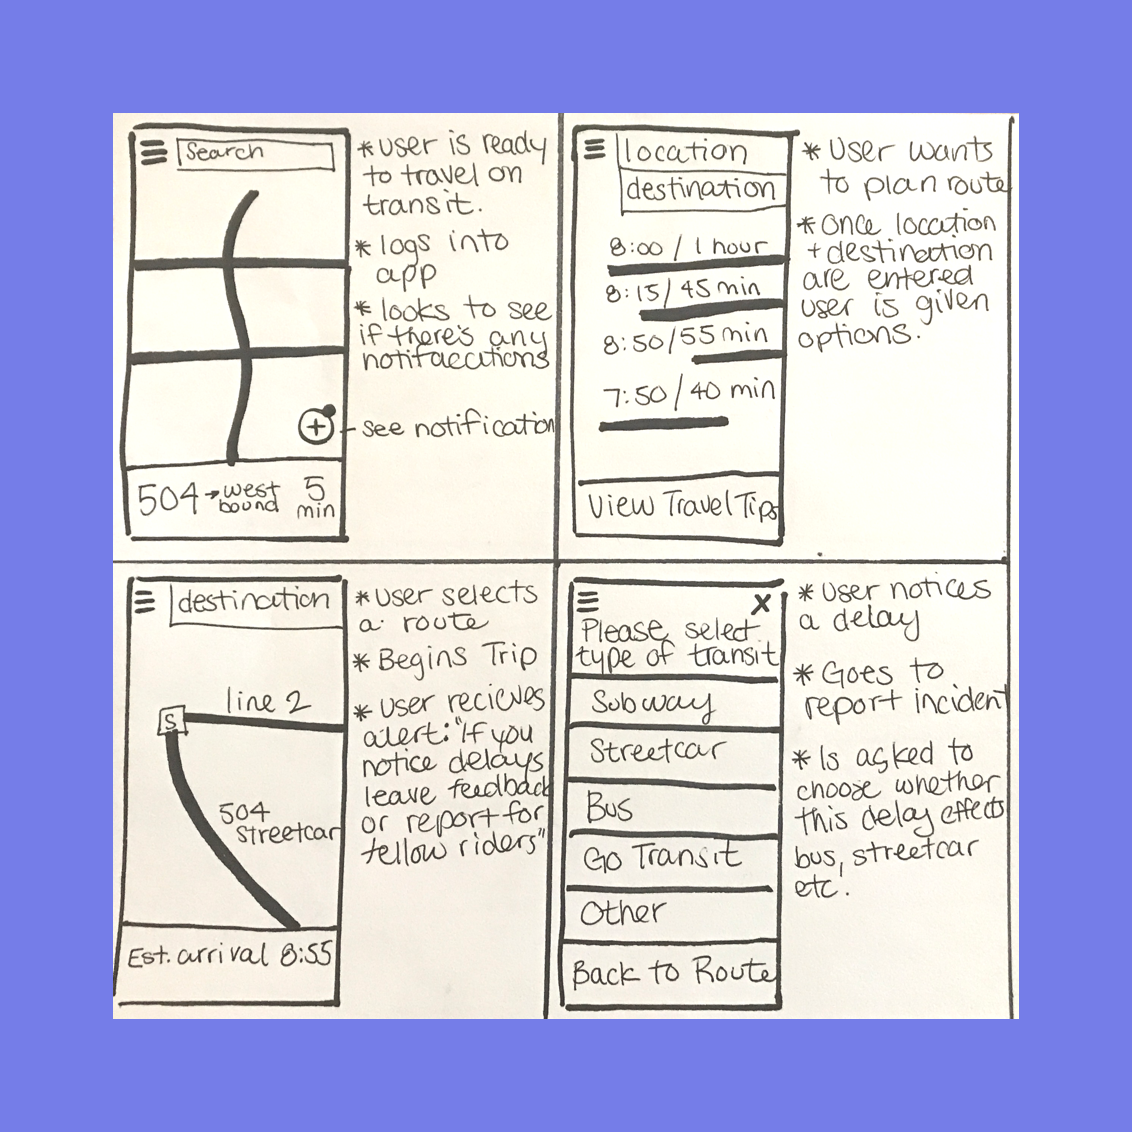 Search
504 → west bound 5 min
* user is ready
to travel on
transit.
* logs into
app
* looks to see
if there's any
notifaecations
- see notification
location
destination
8:00 / 1 hour
8:15 / 45 min
8:50 / 55 min
7:50 / 40 min
View Travel Tips
* User wants
to plan route
* Once location
+ destination
are entered
user is given
options.
destination
line 2
S
504
Streetcar
Est. arrival 8:55
* User selects
a route
* Begins Trip
* User recieves
alert: "If you
notice delays
leave feedback
or report for
fellow riders"
X
Please select
type of transit
Subway
Streetcar
Bus
Go Transit
Other
Back to Route
* User notices
a delay
* Goes to
report incident
* Is asked to
choose whether
this delay effects
bus, streetcar
etc.